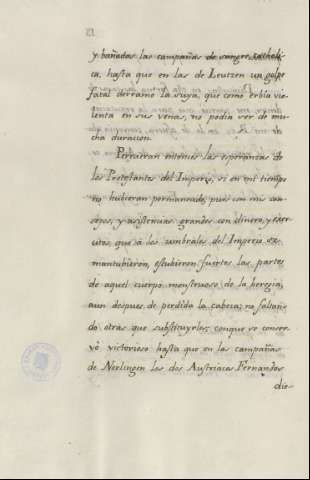 y bañadas las campañas de sangre catholi-
ca, hasta que en las de Leutzen un golpe
fatal derramò la suya, que como erbia vio-
lenta en sus venas, no podia ser de mu-
cha duracion.
Perecieran entonces las esperanzas de
los Protestantes del Imperio, si en mi tiempo
no hubieran permanecido, pues con mis con-
sejos, y asistencias grandes con dinero, y exer-
citos, que à los umbrales del Imperio se
mantubieron, estubieron fuertes las partes
de aquel cuerpo monstruoso de la heregia,
aun despues de perdida la cabeza; no faltan-
do otras que substituyrles, conque se conser-
vò victorioso hasta que en las campañas
de Nerlingen los dos Austriacos Fernandos
die-